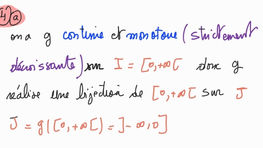 4) a)
on a g continue et monotone (strictement
décroissante) sur I = [0, +∞[ donc g
réalise une bijection de [0, +∞[ sur J
J = g([0, +∞[) = ]-∞, 0]